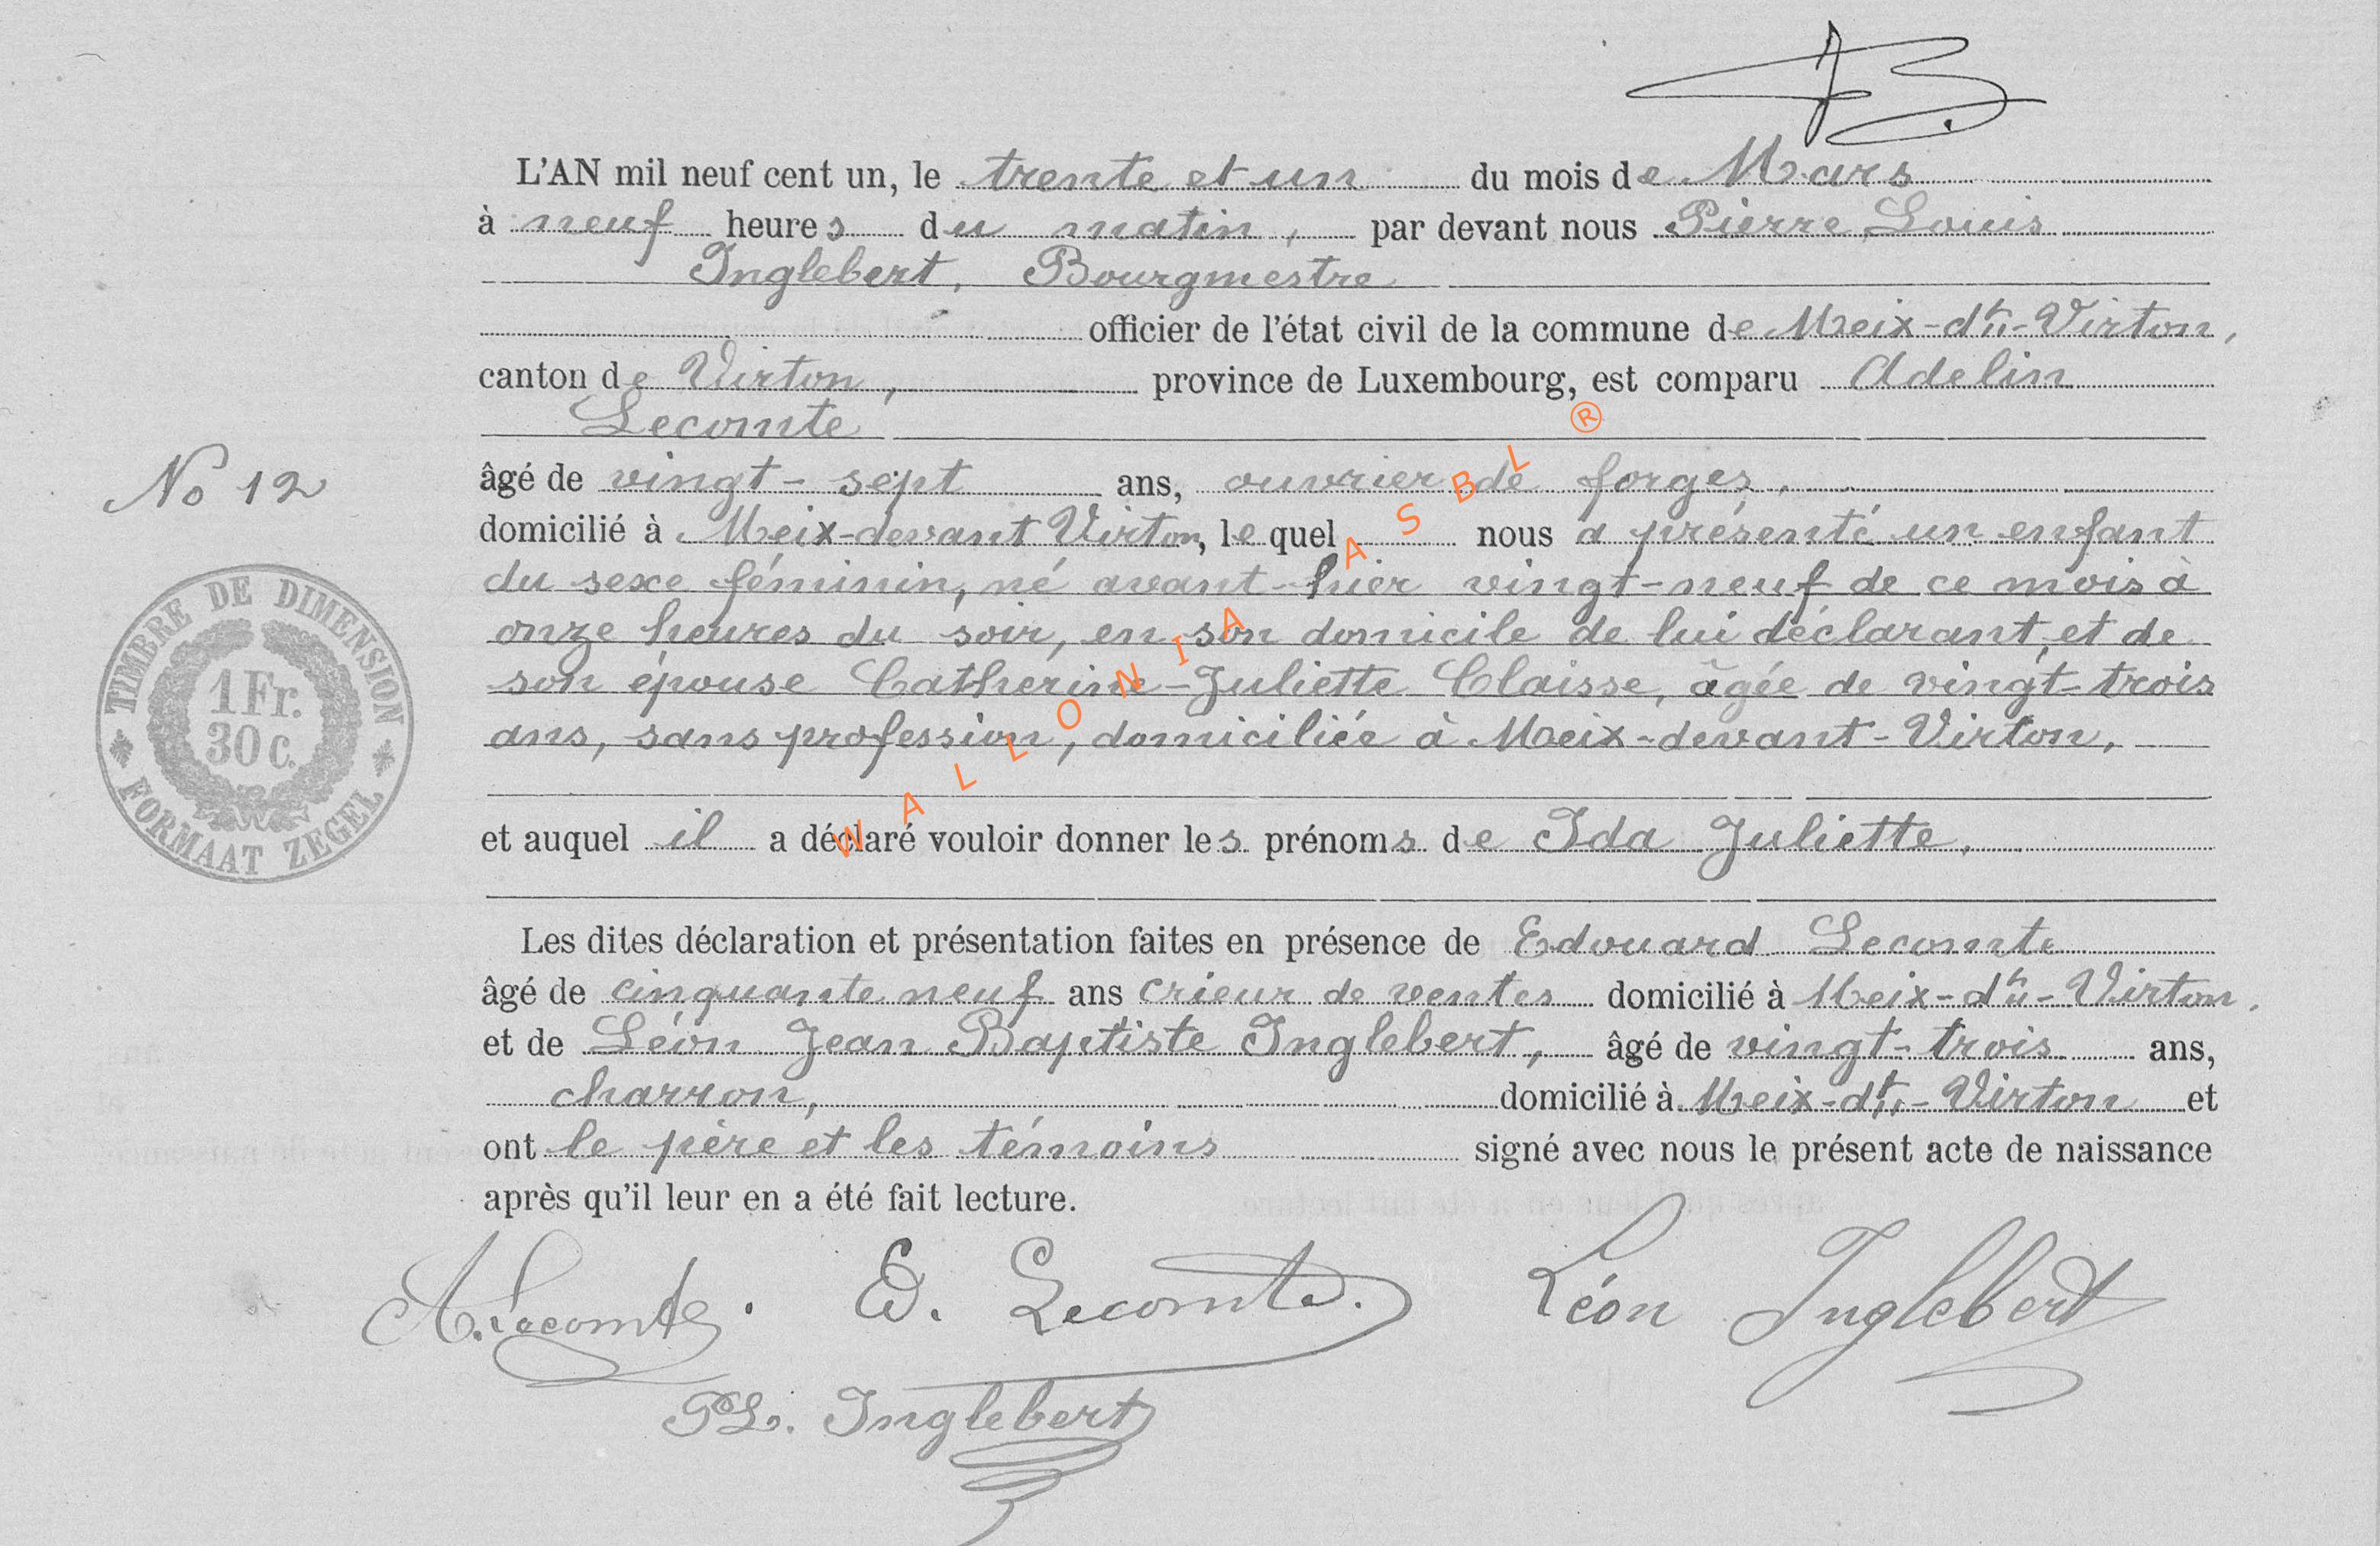 L'AN mil neuf cent un, le trente et un du mois de Mars
à neuf heures du matin, par devant nous Pierre Louis
Inglebert, Bourgmestre
officier de l'état civil de la commune de Meix-dt-Virton,
canton de Virton, province de Luxembourg, est comparu Adelin
Lecomte
No 12
âgé de vingt-sept ans, ouvrier de forges,
domicilié à Meix-devant Virton, lequel nous a présenté un enfant
du sexe féminin, né avant-hier vingt-neuf de ce mois à
onze heures du soir, en son domicile de lui déclarant, et de
son épouse Catherine-Juliette Claisse, âgée de vingt-trois
ans, sans profession, domiciliée à Meix-devant-Virton,
TIMBRE DE DIMENSION
1 Fr.
30 c.
FORMAAT ZEGEL
et auquel il a déclaré vouloir donner les prénoms de Ida Juliette.
Les dites déclaration et présentation faites en présence de Edouard Lecomte
âgé de cinquante neuf ans crieur de ventes domicilié à Meix-dt-Virton,
et de Léon Jean Baptiste Inglebert, âgé de vingt-trois ans,
charron, domicilié à Meix-dt-Virton et
ont le père et les témoins signé avec nous le présent acte de naissance
après qu'il leur en a été fait lecture.
A. Lecomte. Ed. Lecomte. Léon Inglebert
PL. Inglebert
WALLONIA ASBL ®